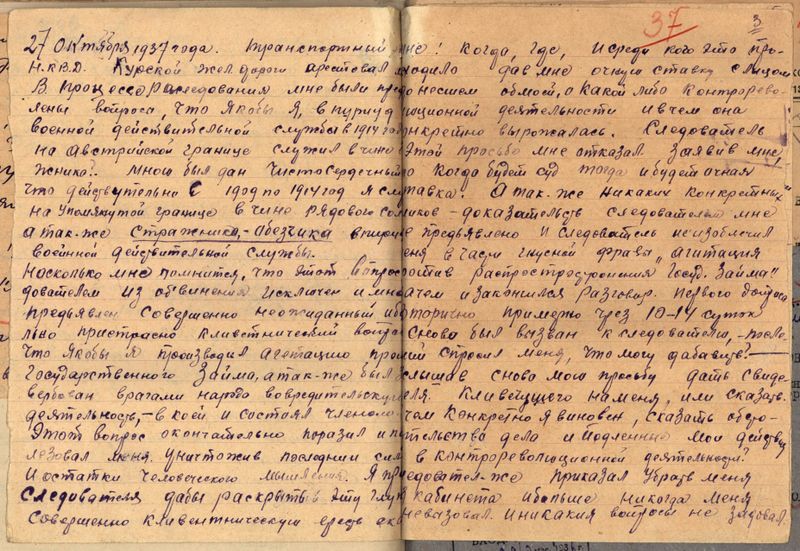 27 Октября 1937 года. Транспортный
Н.К.В.Д. Курской жел. дороги арестовал
В процессе расследования мне были пред
лены вопроса, что якобы я, в период
военной действительной службы в 1914 год
на Австрийской границе служил в чине
жника?. Мною был дан чистосердечный
что действительно с 1910 до 1914 год я слу
на упомянутой границе в чине рядового со
а так-же стражника, - обезчика
военной действительной службы.
насколько мне помнится, что этот вопрос
дователем из обвинения исключен и мн
предьявлен совершенно неожиданный и
льно пристрасно кливетнический вопр
что якобы я производил агетацию про
Государственного Займа, а так-же был
вербован врагами народа во вредительскую
деятельность, - в коей и состоял членом
Этот вопрос окончательно поразил и
лезовал меня уничтожив последнии сил
и остатки человеческого мышления. Я пр
следователя дабы раскрыть эту глу
совершенно кливентническую ересь
37
3
мне! когда, где, и среди кого это про-
ходило дав мне очную ставку с лицом
доносшем обмой, о какой либо контрорево-
люционной деятельности и в чем она
конкретно вырожалась. Следователь
этой просьбе мне отказал. Заявив мне,
что когда будет суд тогда и будет очная
ставка! А так-же никаких конкретных
ников - доказательств следователем мне
не предьявлено и следователь не изобличил
меня в части гнусной фразы "агитация
против распространения Госуд. Займа"
чем и закончился разговор. Первого допроса
вторично примерно чрез 10-14 суток
снова был вызван к следователю, - после
спросил меня, что могу дабавить? -
слышав снова мою просьбу дать свиде-
теля. Кливещущего на меня, или сказать
чем конкретно я виновен, сказать обсто-
ятельства дела и подленно мои действи
в контрореволюционной деятельности?
следовател-же приказал убрать меня
кабинета и больше никогда меня
невызовал. и никакия вопросы не задовал.